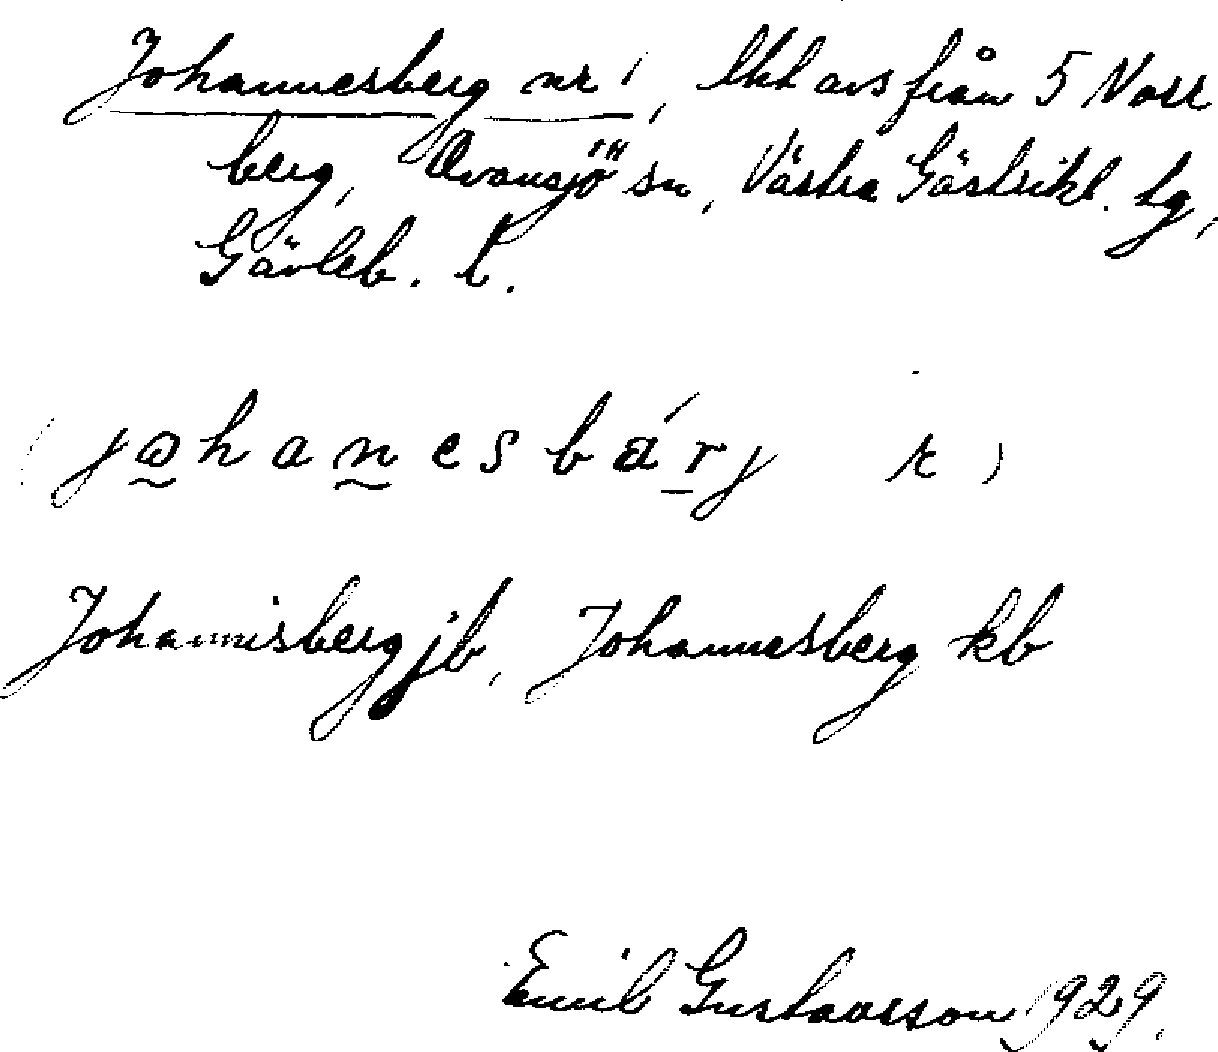 Johannesberg nr 1, lht avs från 5 Norr
berg, Ovansjö sn, Västra Gästrikl. tg,
Gävleb. l.
(johanesbärj r)
Johannisberg jb, Johannesberg kb
Emil Gustavsson 1929.